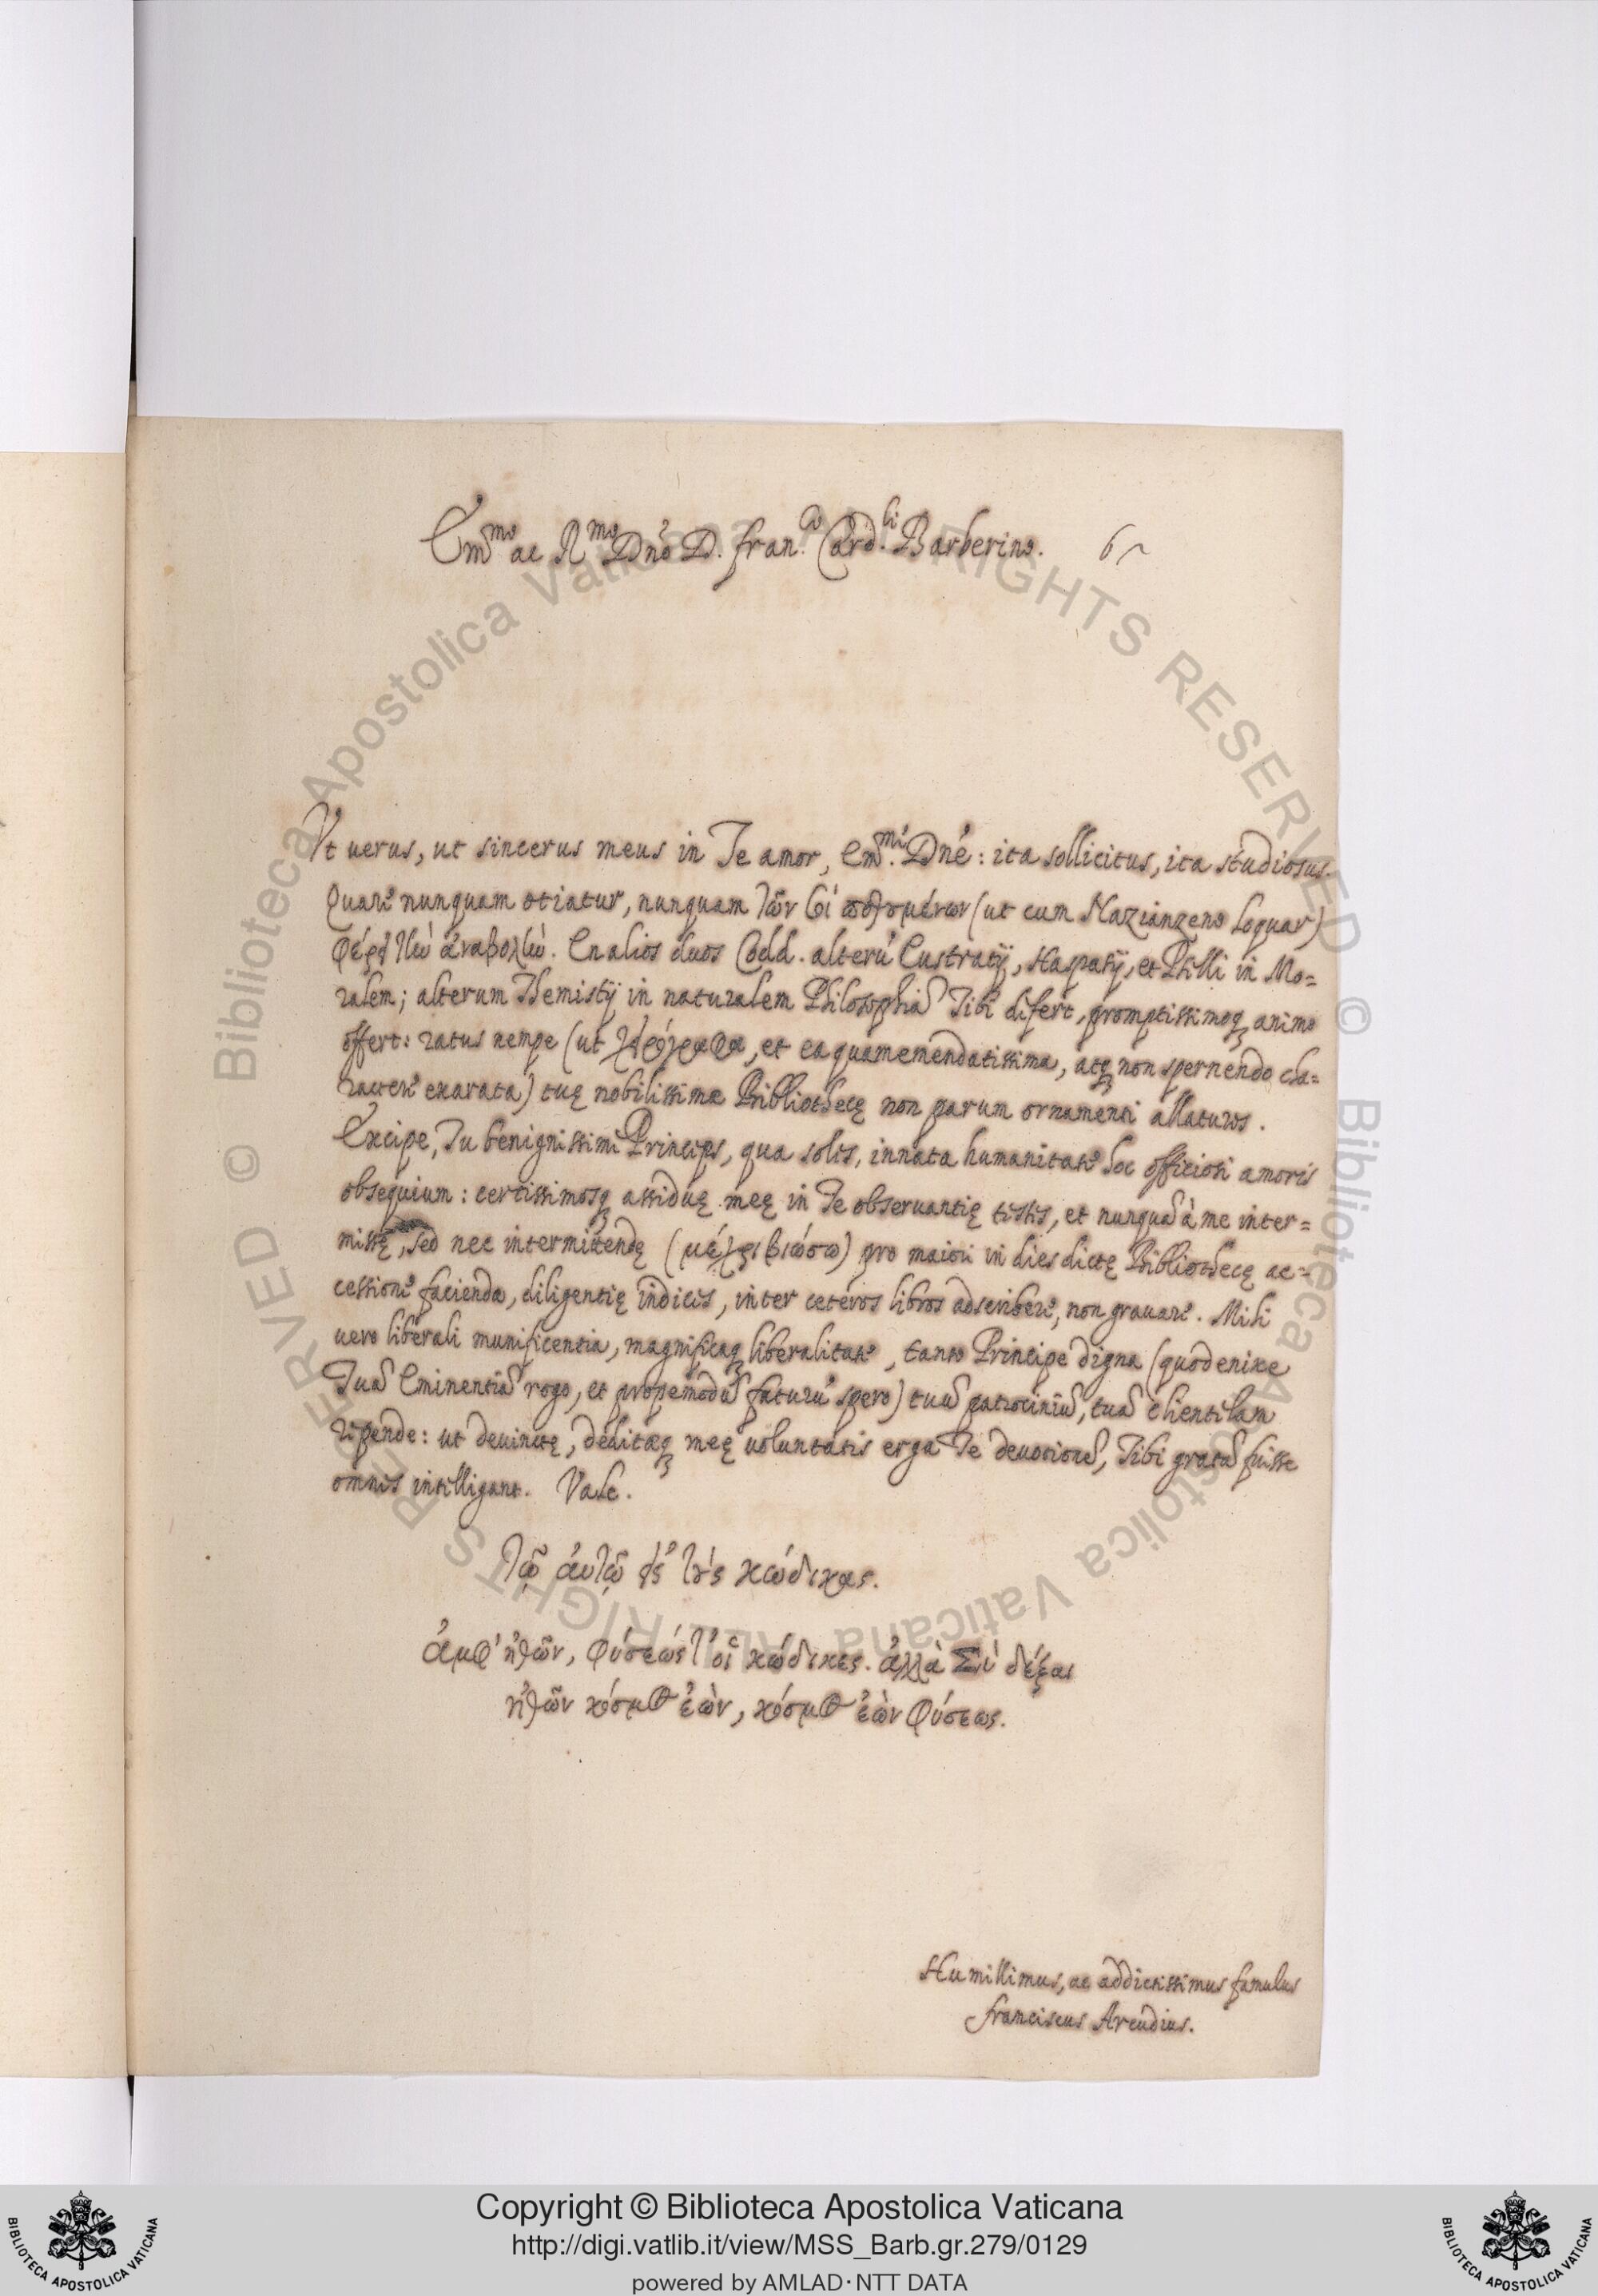 Em̃mo ac Rmo Dnõ D. Fran.co Card.li Barberino. 65
Vt uerus, ut sincerus meus in Te amor, Em̃.mè Dnẽ: ita sollicitus, ita studiosus.
Quare nunquam otiatur, nunquam τῶν ἐπιποθουμένων (ut cum Nazianzeno loquar)
φέρει τὴν ἀναβολὴν. En alios duos Codd. alterũ Eustratij, Haspasij, et Pselli in Mo=
ralem; alterum Themistij in naturalem Philosophiã Tibi defert, promptissimoq; animo
offert: ratus nempe (ut χειρόγραφα, et ea quamemendatissima, atq; non spernendo cha=
ractere exarata) tuę nobilissimæ Bibliothecę non parum ornamenti allaturos.
Excipe, Tu benignissime Princeps, qua soles, innata humanitate hoc officiosi amoris
obsequium: certissimosq; assiduę meę in Te obseruantię testes, et nunquã à me inter=
missę, sed nec intermittendę (μέχρι βιώσω) pro maiori in dies dictę Bibliothecę ac=
cessione facienda, diligentię indices, inter ceteros libros adscribere, non grauare. Mihi
uero liberali munificentia, magnificaq; liberalitate, tanto Principe digna (quod enixe
Tuã Eminentiã rogo, et propemodũ futurũ spero) tuũ patrociniũ, tuã clientelam
repende: ut deuinctę, deditæq; meę uoluntatis erga Te deuotionẽ, Tibi gratã fuisse
omnes intelligant. Vale.
Τῷ ἀυτῷ εἰς τοὺς κώδικας.
ἀμφ' ἠθῶν, φύσεώς τ' οἱ κώδικες. ἀλλὰ Σὺ δέξαι
ἠθῶν κόσμος ἐὼν, κόσμος ἐὼν φύσεως.
Humillimus, ac addictissimus famulus
Franciscus Arcudius.
© Biblioteca Apostolica Vaticana ALL RIGHTS RESERVED
© Biblioteca Apostolica Vaticana ALL RIGHTS RESERVED
Copyright © Biblioteca Apostolica Vaticana
http://digi.vatlib.it/view/MSS_Barb.gr.279/0129
powered by AMLAD·NTT DATA
BIBLIOTECA APOSTOLICA VATICANA
BIBLIOTECA APOSTOLICA VATICANA